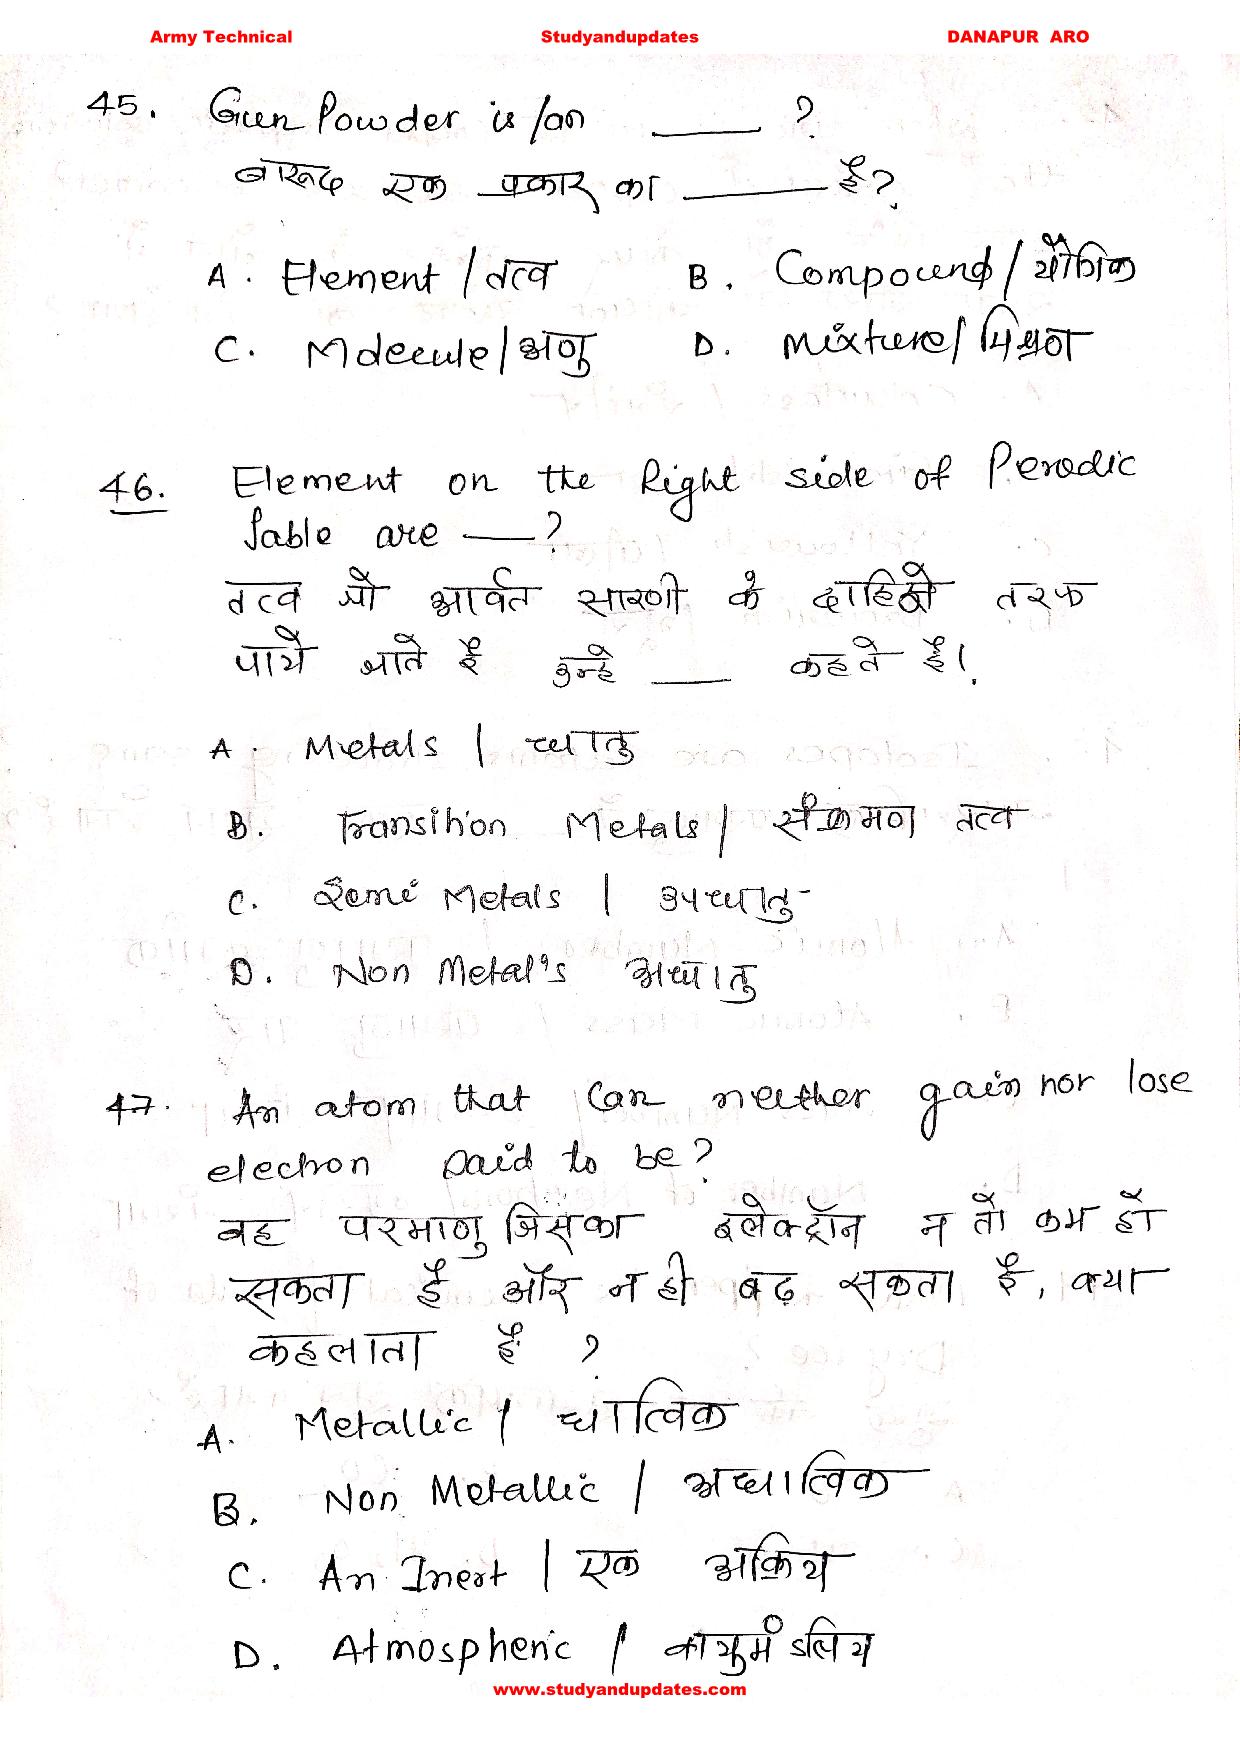 Army Technical Studyandupdates DANAPUR ARO
45. Gun Powder is/an ____ ?
बारूद एक प्रकार का ____ है?
A. Element / तत्व B. Compound / यौगिक
C. Molecule / अणु D. Mixture / मिश्रण
46. Element on the Right side of Perodic
Table are ___ ?
तत्व जो आर्वत सारणी के दाहिने तरफ
पाये जाते है उन्हे ____ कहते है।
A. Metals | धातु
B. Transition Metals / संक्रमण तत्व
C. Semi Metals | उपधातु
D. Non Metal's अधातु
47. An atom that can neither gain nor lose
electron said to be?
वह परमाणु जिसका इलेक्ट्रॉन न तो कम हो
सकता है और न ही बढ़ सकता है, क्या
कहलाता है ?
A. Metallic / धात्विक
B. Non Metallic / अधात्विक
C. An Inert | एक अक्रिय
D. Atmospheric / वायुमंडलिय
www.studyandupdates.com